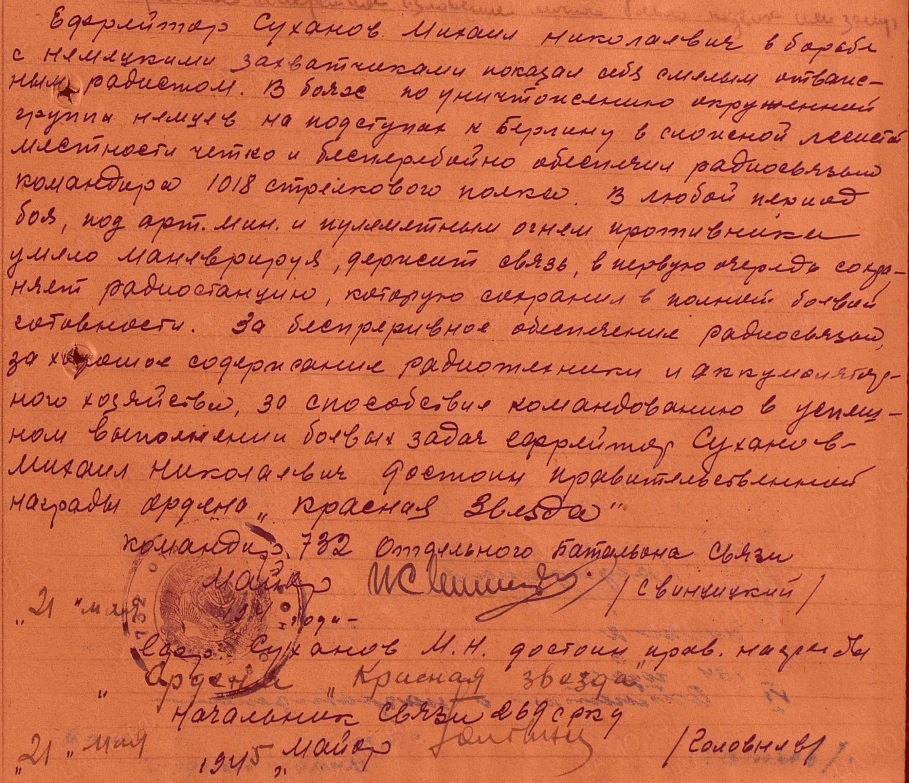 Ефрейтор Суханов Михаил Николаевич в борьбе
с немецкими захватчиками показал себя смелым отваж-
ным радистом. В боях по уничтожению окруженной
группы немцев на подступах к Берлину в сложной лесистой
местности четко и бесперебойно обеспечил радиосвязью
командира 1018 стрелкового полка. В любой период
боя, под арт. мин. и пулеметным огнем противника
умело маневрируя, держит связь, в первую очередь сохра-
няет радиостанцию, которую сохранил в полной боевой
готовности. За беспрерывное обеспечение радиосвязью,
за хорошое содержание радиотехники и аккумолятор-
ного хозяйства, за способствия командованию в успеш-
ном выполнении боевых задач ефрейтор Суханов-
Михаил Николаевич достоин правительственной
награды ордена „Красная Звезда"
командир 732 Отдельного Батальона Связи
майор /Свинцицкий/
„21" мая года-
Ефр. Суханов М.Н. достоин прав. награды
„Ордена „Красная звезда"
Начальник связи
„21" мая 1945 майор /Головнев/
732